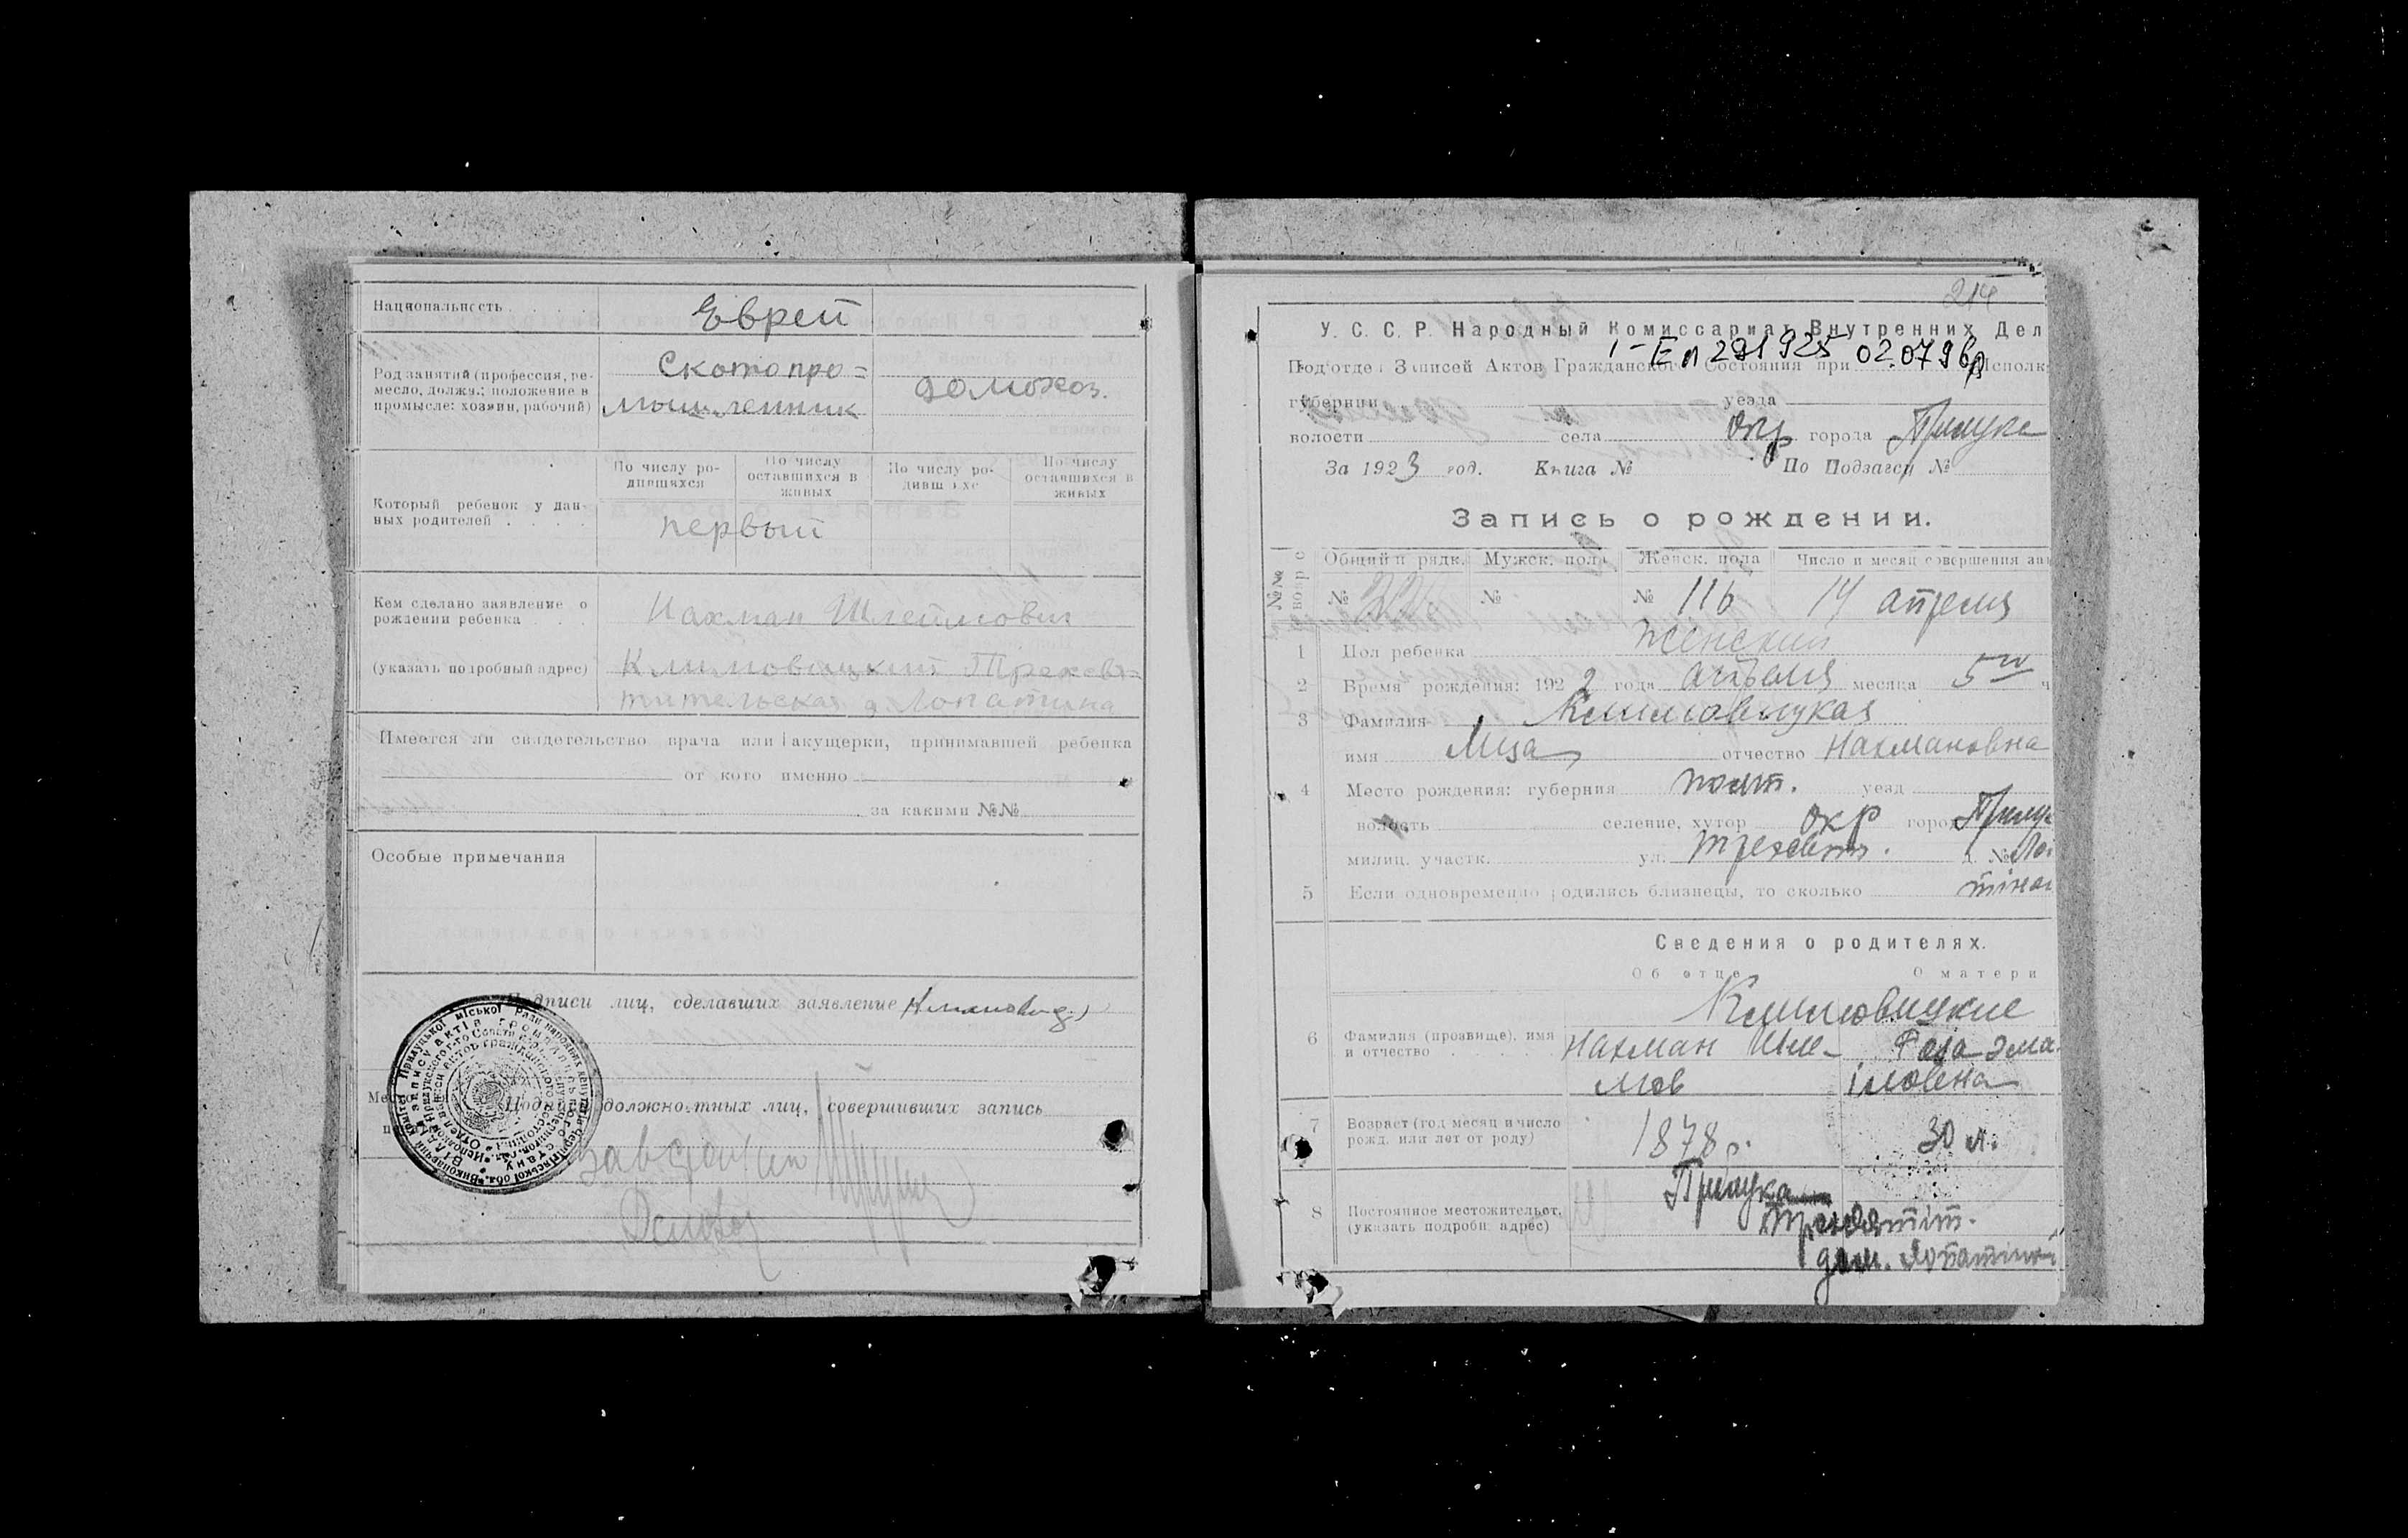 Национальность
Еврей
Род занятий (профессия, ре-
месло, должн.; положение в
промысле: хозяин, рабочий)
Скотопро=
мышленник
домохоз.
Который ребенок у дан-
ных родителей . . . .
По числу ро-
дившихся
По числу
оставшихся в
живых
По числу ро-
дившихс
По числу
оставшихся в
живых
первый
Кем сделано заявление о
рождении ребенка . . .
Нахман Шлеймович
(указать подробный адрес)
Климовицкий Трехсвя=
тительская д Лопатина
Имеется ли свидетельство врача или акушерки, принимавшей ребенка
от кого именно
за какими №№
Особые примечания
Подписи лиц, сделавших заявление
должностных лиц, совершивших запись
214
У. С. С. Р. Народный Комиссариат Внутренних Дел
02.07.96р
Подотдел Записей Актов Гражданского Состояния при Исполк
губернии уезда
волости села окр города Прилука
За 1923 год. Книга № По Подзагсу №
Запись о рождении.
Общий п рядк. Мужск. пола Женск. пола Число и месяц совершения за
№ № № 116 14 апреля
1 Пол ребенка Женский
2 Время рождения: 1922 года апреля месяца 5го ч
3 Фамилия Климовицкая
имя Лиза отчество Нахмановна
4 Место рождения: губерния полт. уезд
волость селение, хутор окр город Прилук
милиц. участк. ул. Трехсвят. д. № Ло
5 Если одновременно родились близнецы, то сколько тіна
Сведения о родителях.
Об отце О матери
Климовицкие
6 Фамилия (прозвище), имя
и отчество . . . . .
Нахман Шле-
мов
Роза
7 Возраст (год месяц и число
рожд. или лет от роду)
1878 г. 30 л.
8 Постоянное местожительст.
(указать подробн. адрес)
Прилука
Трехсвятіт.
дом. Лопатіной